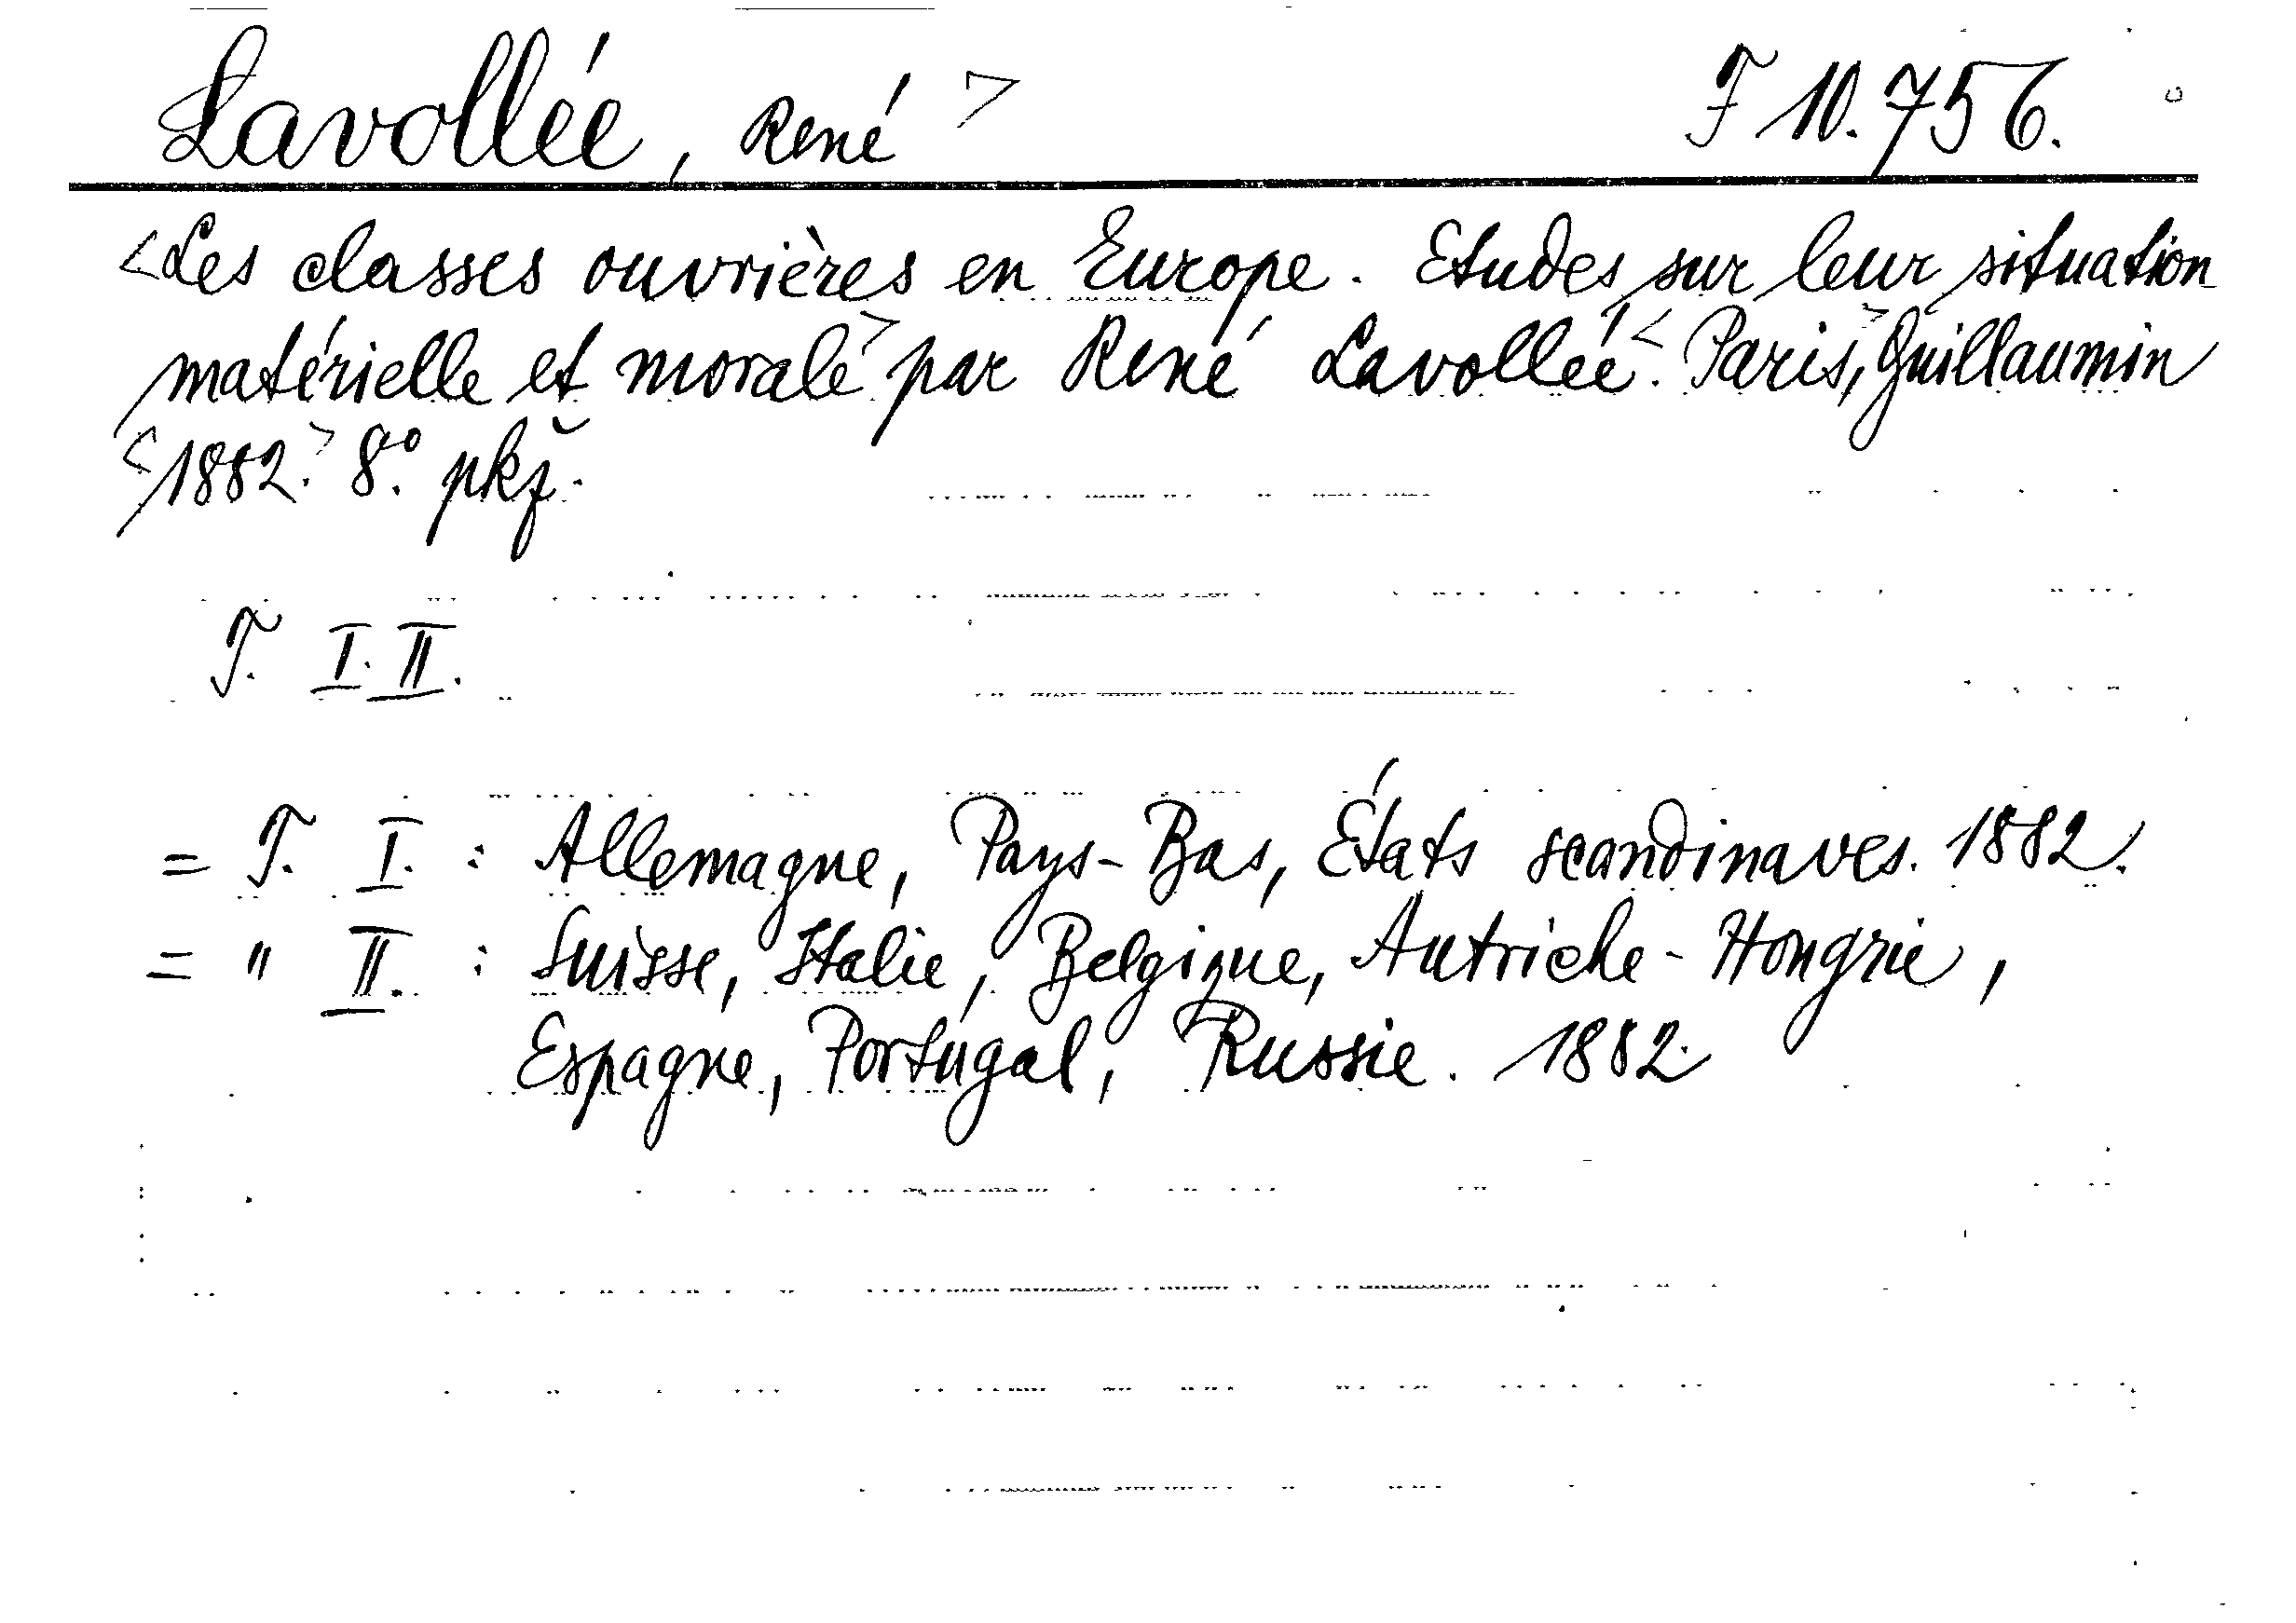 Lavollée, René > F 10.756.
<Les classes ouvrières en Europe. Etudes sur leur situation
matérielle et morale> par René Lavollée.< Paris,> Guillaumin
<1882.> 8°. pkž.
T. I. II.
= T. I. : Allemagne, Pays-Bas, États scandinaves. 1882.
= " II. : Suisse, Italie, Belgique, Autriche-Hongrie,
Espagne, Portugal, Russie. 1882.